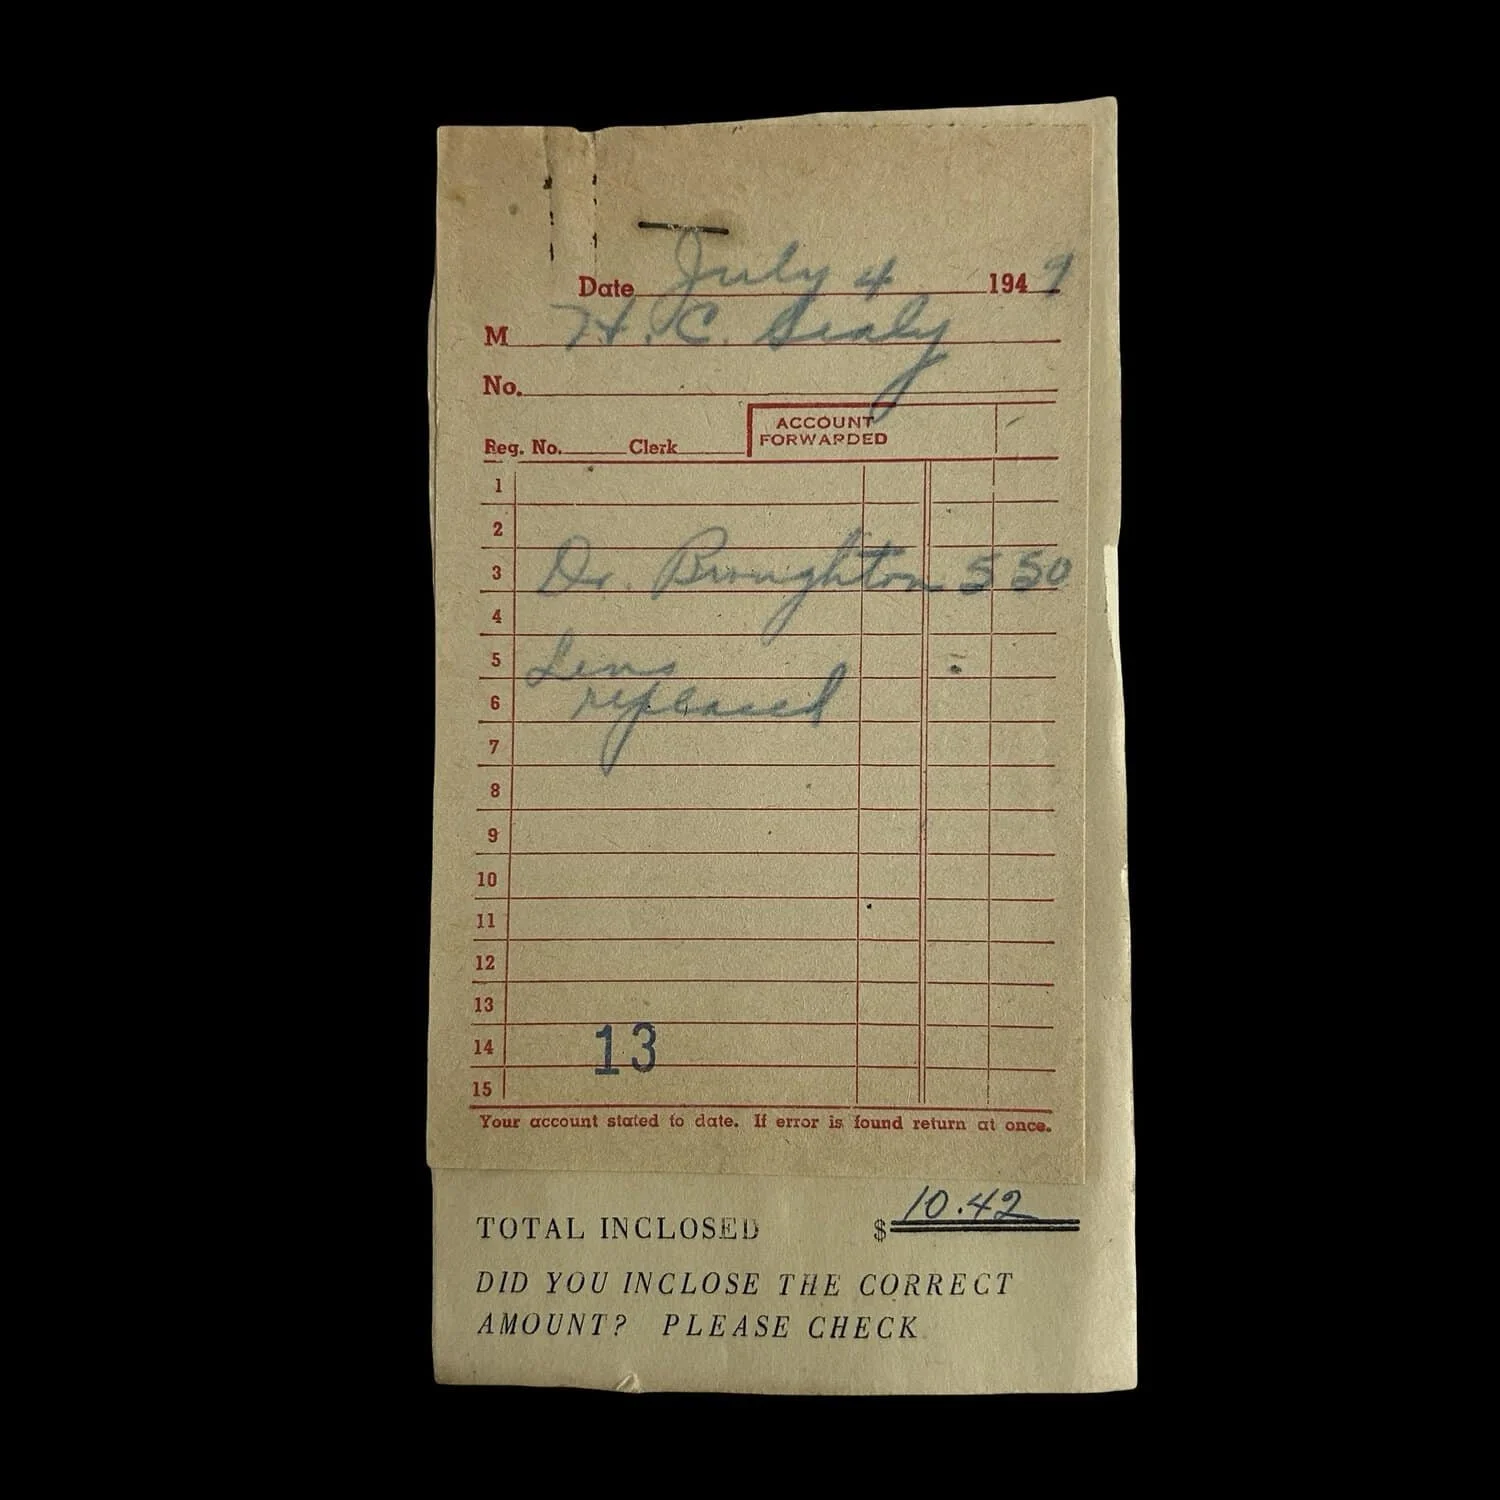 Date July 4 1949
M H. C. Sealy
No.
ACCOUNT
FORWARDED
Reg. No. Clerk
1
2
3 Dr. Broughton 5 50
4
5 Lens
6 replaced
7
8
9
10
11
12
13
14 13
15
Your account stated to date. If error is found return at once.
TOTAL INCLOSED $ 10.42
DID YOU INCLOSE THE CORRECT
AMOUNT? PLEASE CHECK